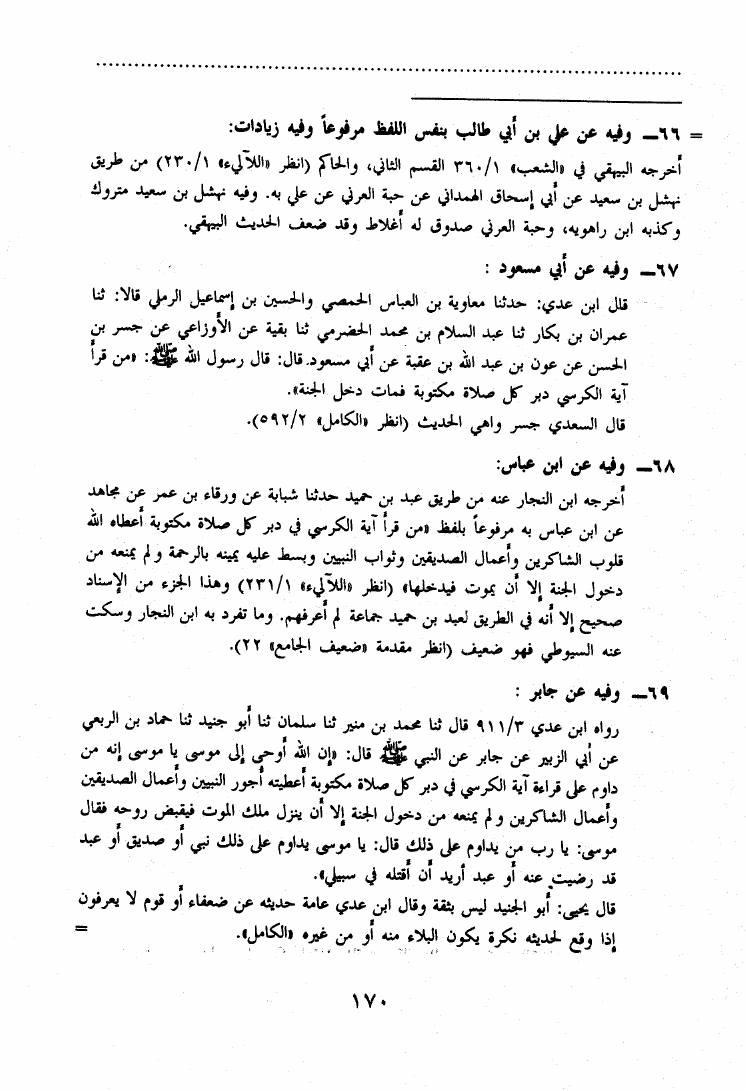 = ٦٦ــ وفيه عن علي بن أبي طالب بنفس اللفظ مرفوعاً وفيه زيادات:
أخرجه البيهقي في «الشعب» ٣٦٠/١ القسم الثاني، والحاكم (انظر «اللآليء» ٢٣٠/١) من طريق
نهشل بن سعيد عن أبي إسحاق الهمداني عن حبة العرني عن علي به. وفيه نهشل بن سعيد متروك
وكذبه ابن راهويه، وحبة العرني صدوق له أغلاط وقد ضعف الحديث البيهقي.
٦٧ــ وفيه عن أبي مسعود :
قال ابن عدي: حدثنا معاوية بن العباس الحمصي والحسين بن إسماعيل الرملي قالا: ثنا
عمران بن بكار ثنا عبد السلام بن محمد الحضرمي ثنا بقية عن الأوزاعي عن جسر بن
الحسن عن عون بن عبد الله بن عقبة عن أبي مسعود. قال: قال رسول الله ﷺ: «من قرأ
آية الكرسي دبر كل صلاة مكتوبة فمات دخل الجنة».
قال السعدي جسر واهي الحديث (انظر «الكامل» ٥٩٢/٢).
٦٨ــ وفيه عن ابن عباس:
أخرجه ابن النجار عنه من طريق عبد بن حميد حدثنا شبابة عن ورقاء بن عمر عن مجاهد
عن ابن عباس به مرفوعاً بلفظ «من قرأ آية الكرسي في دبر كل صلاة مكتوبة أعطاه الله
قلوب الشاكرين وأعمال الصديقين وثواب النبيين وبسط عليه يمينه بالرحمة ولم يمنعه من
دخول الجنة إلا أن يموت فيدخلها» (انظر «اللآليء» ٢٣١/١) وهذا الجزء من الإسناد
صحيح إلا أنه في الطريق لعبد بن حميد جماعة لم أعرفهم. وما تفرد به ابن النجار وسكت
عنه السيوطي فهو ضعيف (انظر مقدمة «ضعيف الجامع» ٢٢).
٦٩ــ وفيه عن جابر :
رواه ابن عدي ٩١١/٣ قال ثنا محمد بن منير ثنا سلمان ثنا أبو جنيد ثنا حماد بن الربعي
عن أبي الزبير عن جابر عن النبي ﷺ قال: «إن الله أوحى إلى موسى يا موسى إنه من
داوم على قراءة آية الكرسي في دبر كل صلاة مكتوبة أعطيته أجور النبيين وأعمال الصديقين
وأعمال الشاكرين ولم يمنعه من دخول الجنة إلا أن ينزل ملك الموت فيقبض روحه فقال
موسى: يا رب من يداوم على ذلك قال: يا موسى يداوم على ذلك نبي أو صديق أو عبد
قد رضيت عنه أو عبد أريد أن أقتله في سبيلي».
قال يحيى: أبو الجنيد ليس بثقة وقال ابن عدي عامة حديثه عن ضعفاء أو قوم لا يعرفون
إذا وقع لحديثه نكرة يكون البلاء منه أو من غيره «الكامل». =
١٧٠